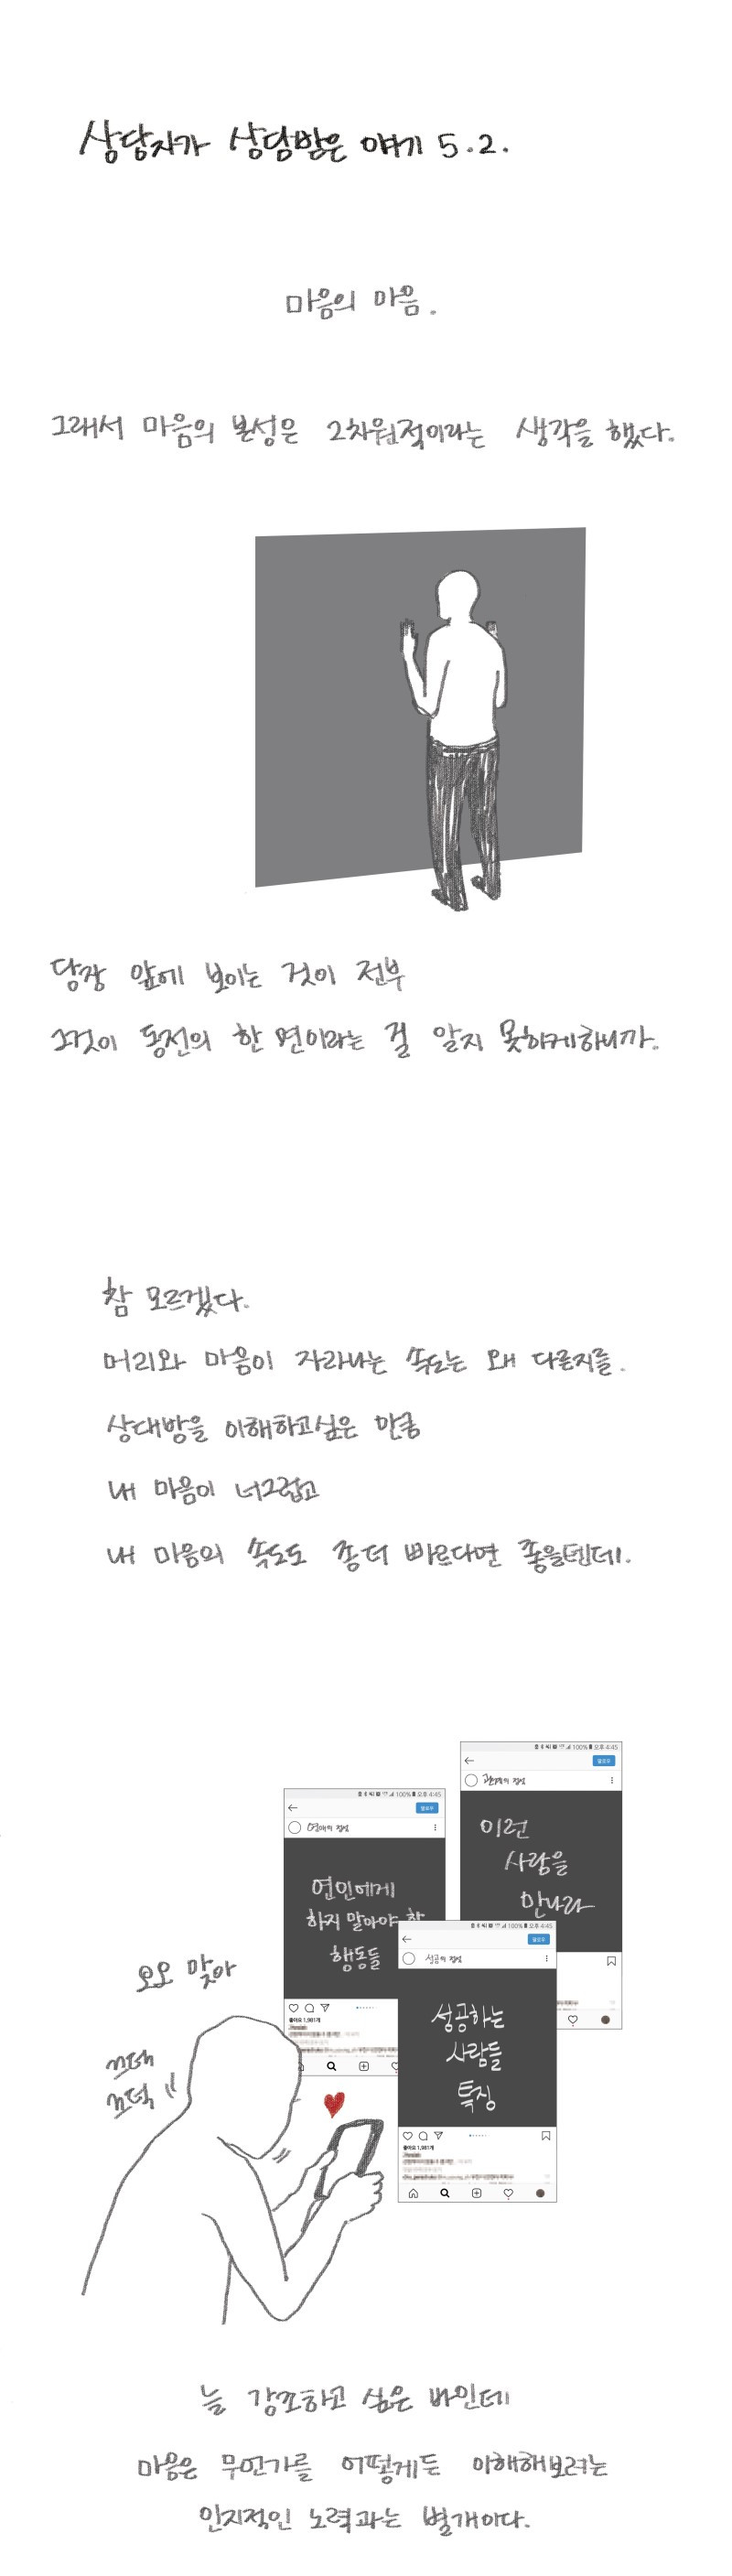 상담자가 상담받은 얘기 5.2.
마음의 마음.
그래서 마음의 본성은 2차원적이라는 생각을 했다.
당장 앞에 보이는 것이 전부
그것이 동전의 한 면이라는 걸 알지 못하게하니까.
참 모르겠다.
머리와 마음이 자라나는 속도는 왜 다른지를.
상대방을 이해하고싶은 만큼
내 마음이 너그럽고
내 마음의 속도도 좀더 빠르다면 좋을텐데.
100% 오후 4:45
팔로우
이런
사람을
만나라
100% 오후 4:45
팔로우
연애의 정석
연인에게
하지 말아야 할
행동들
좋아요 1,981개
100% 오후 4:45
팔로우
성공의 정석
성공하는
사람들
특징
좋아요 1,981개
오오 맞아
끄덕
끄덕
늘 강조하고 싶은 바인데
마음은 무언가를 어떻게든 이해해보려는
인지적인 노력과는 별개이다.